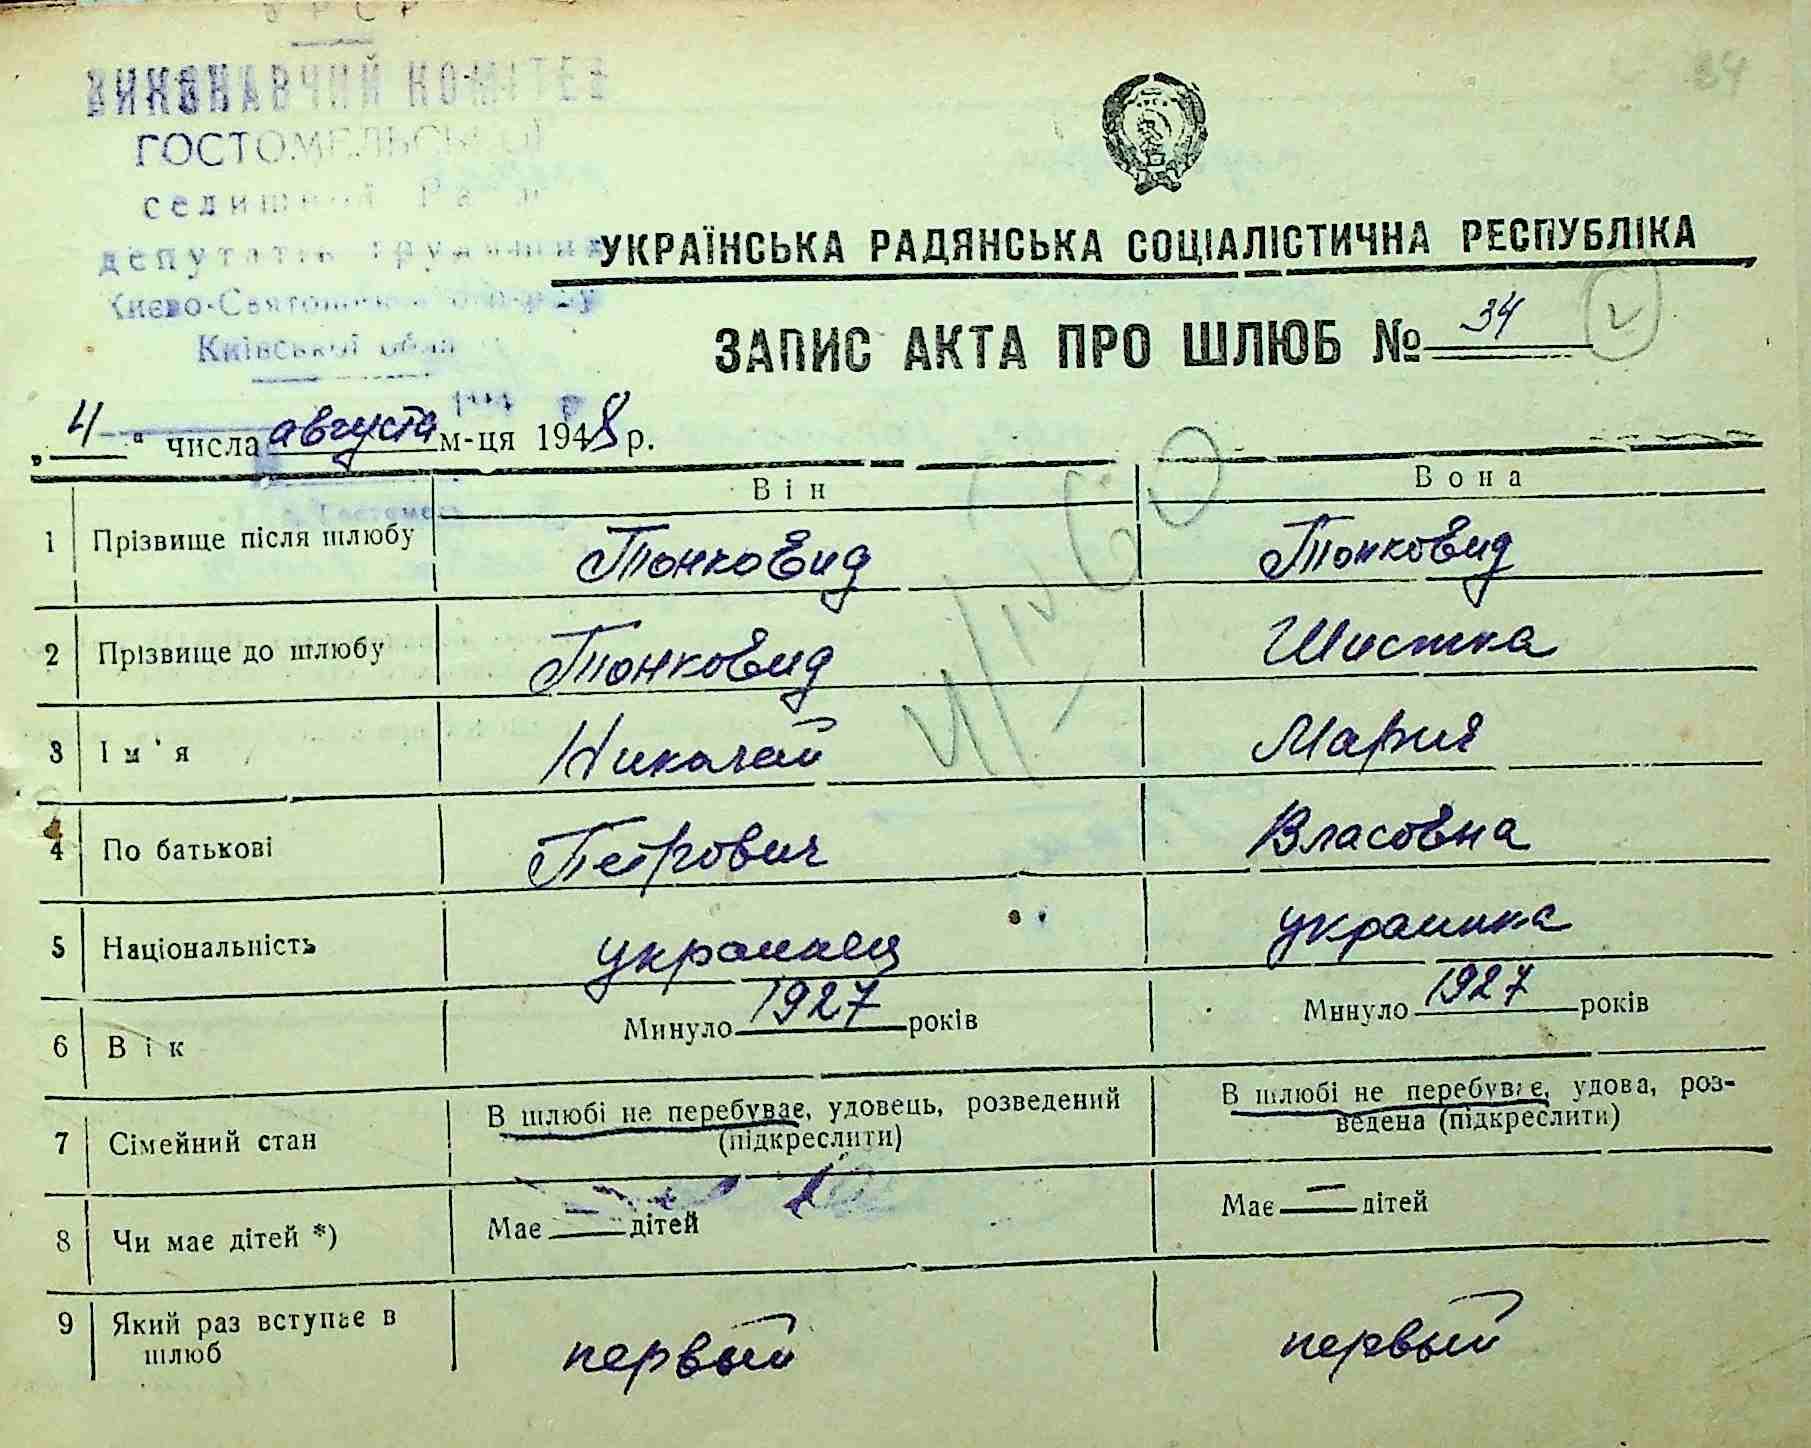 УРСР
ВИКОНАВЧИЙ КОМІТЕТ
ГОСТОМЕЛЬСЬКОЇ
селищної Ради
депутатів трудящих
Києво-Святошинського р-ну
Київської обл.
34
УКРАЇНСЬКА РАДЯНСЬКА СОЦІАЛІСТИЧНА РЕСПУБЛІКА
ЗАПИС АКТА ПРО ШЛЮБ № 34
„4“ числа августа м-ця 1948 р.
Він Вона
1 Прізвище після шлюбу Тонковид Тонковид
2 Прізвище до шлюбу Тонковид Шистка
3 Ім'я Николай Мария
4 По батькові Петрович Власовна
5 Національність украинец украинка
6 Вік Минуло 1927 років Минуло 1927 років
7 Сімейний стан В шлюбі не перебуває, удовець, розведений (підкреслити) В шлюбі не перебуває, удова, роз-
ведена (підкреслити)
8 Чи має дітей *) Має — дітей Має — дітей
9 Який раз вступає в шлюб первый первый